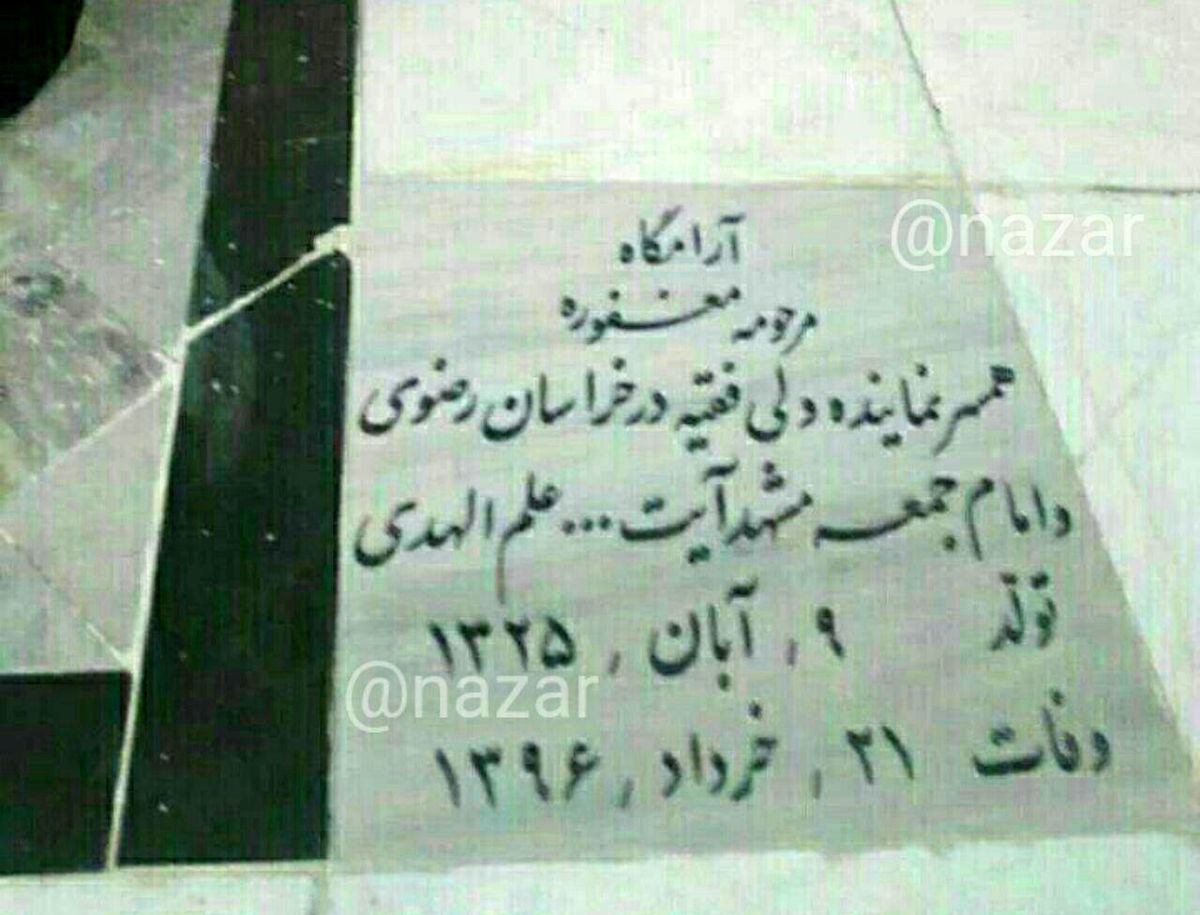 آرامگاه
@nazar
مرحومه مغفوره
همسر نماینده ولی فقیه در خراسان رضوی
و امام جمعه مشهد آیت ... علم الهدی
تولّد ۹ , آبان , ۱۳۲۵
@nazar
وفات ۲۱ , خرداد , ۱۳۹۶